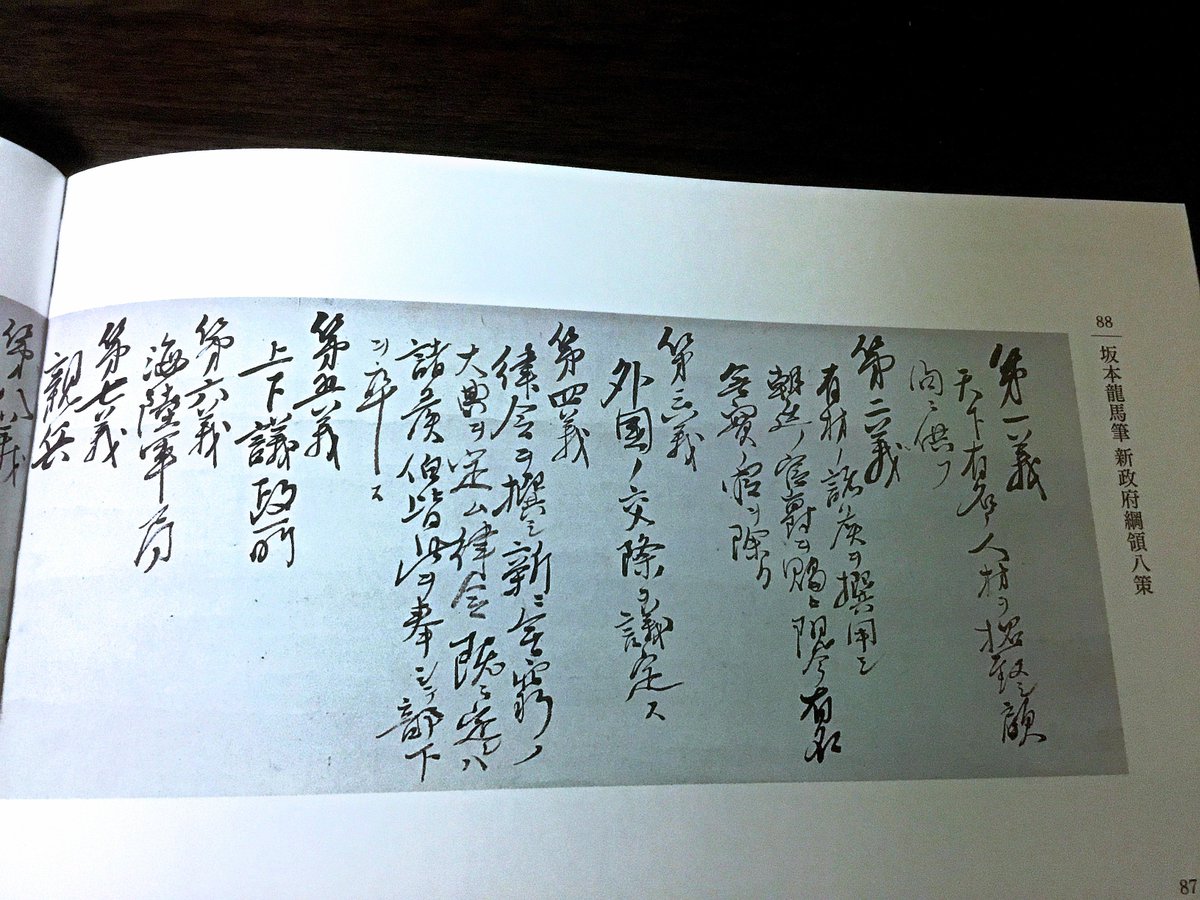 88
坂本龍馬筆 新政府綱領八策
第一義
天下有名ノ人材ヲ招致シ顧
問ニ供フ
第二義
有材ノ諸侯ヲ撰用シ
朝廷ノ官爵ヲ賜ヒ現今有名
無実ノ官ヲ除ク
第三義
外国ノ交際ヲ議定ス
第四義
律令ヲ撰シ新ニ無窮ノ
大典ヲ定ム律令既ニ定レハ
諸侯伯皆此ヲ奉シテ部下
ヲ率ス
第五義
上下議政所
第六義
海陸軍局
第七義
親兵
第八義
87